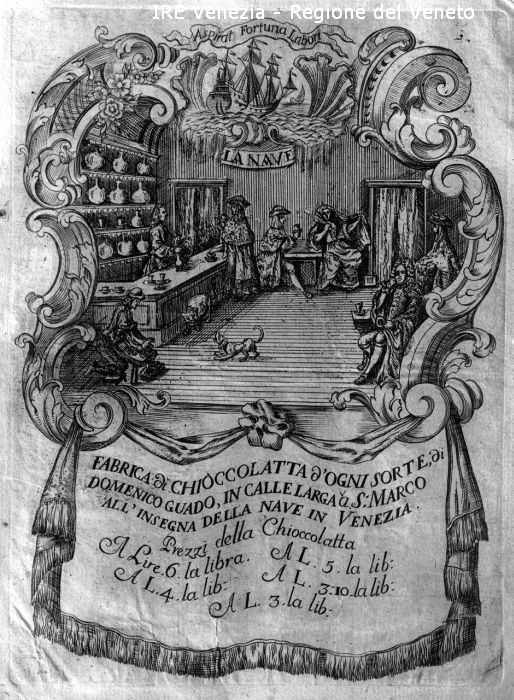 IRE Venezia - Regione del Veneto
Aspirat Fortuna Labori
LA NAVE
FABRICA di CHIOCCOLATTA d'OGNI SORTE, di
DOMENICO GUADO, IN CALLE LARGA à S: MARCO
ALL'INSEGNA DELLA NAVE IN VENEZIA.
Prezzi della Chioccolatta
A Lire. 6. la libra. A L. 5. la lib:
A L. 4. la lib: A L. 3:10. la lib:
A L. 3. la lib: